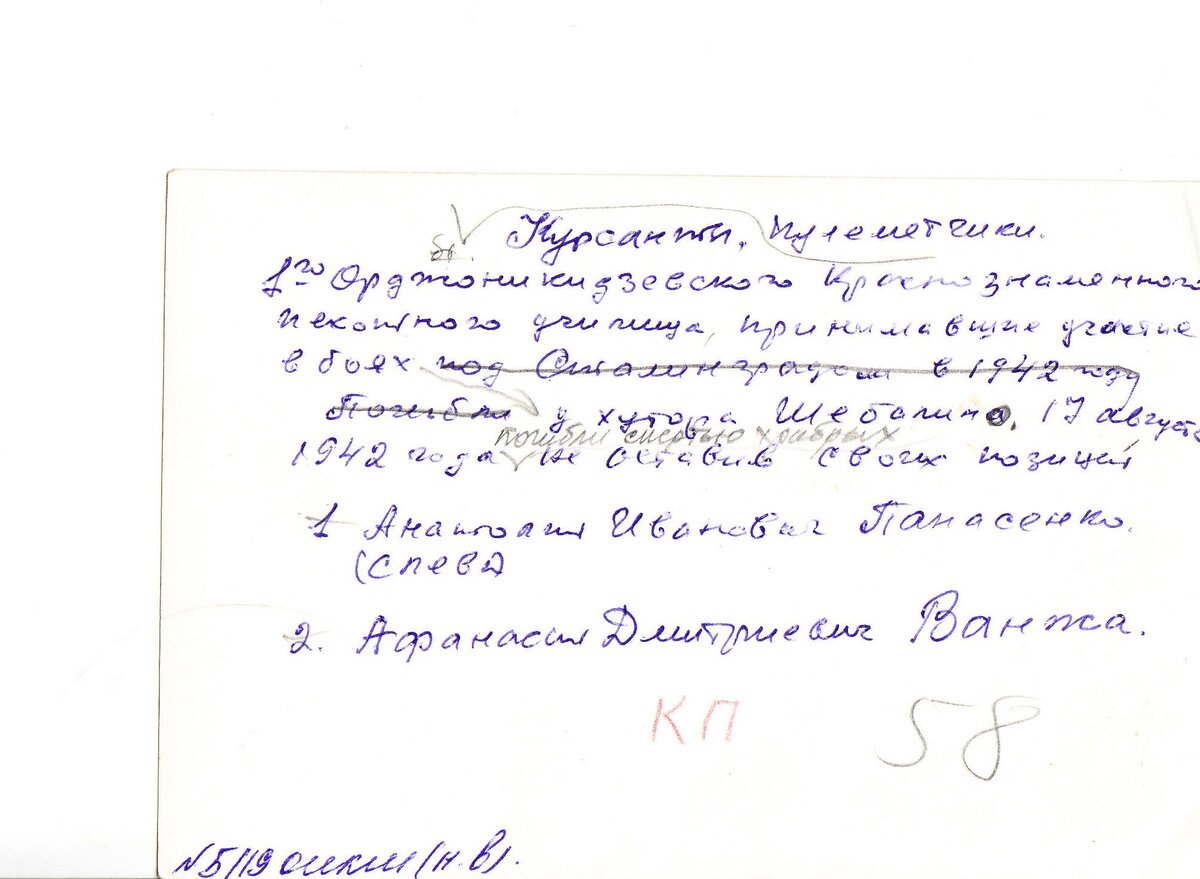 Курсанты, пулеметчики.
1го Орджоникидзевского Краснознаменного
пехотного училища, принимавшие участие
в боях под Сталинградом в 1942 году
Погибли у хутора Шебалина, 17 августа
погибли смертью храбрых
1942 года не оставив своих позиций
1 Анатолий Иванович Панасенко.
(слева)
2. Афанасий Дмитриевич Ванжа.
КП 58
N5119 оикм (н.в).